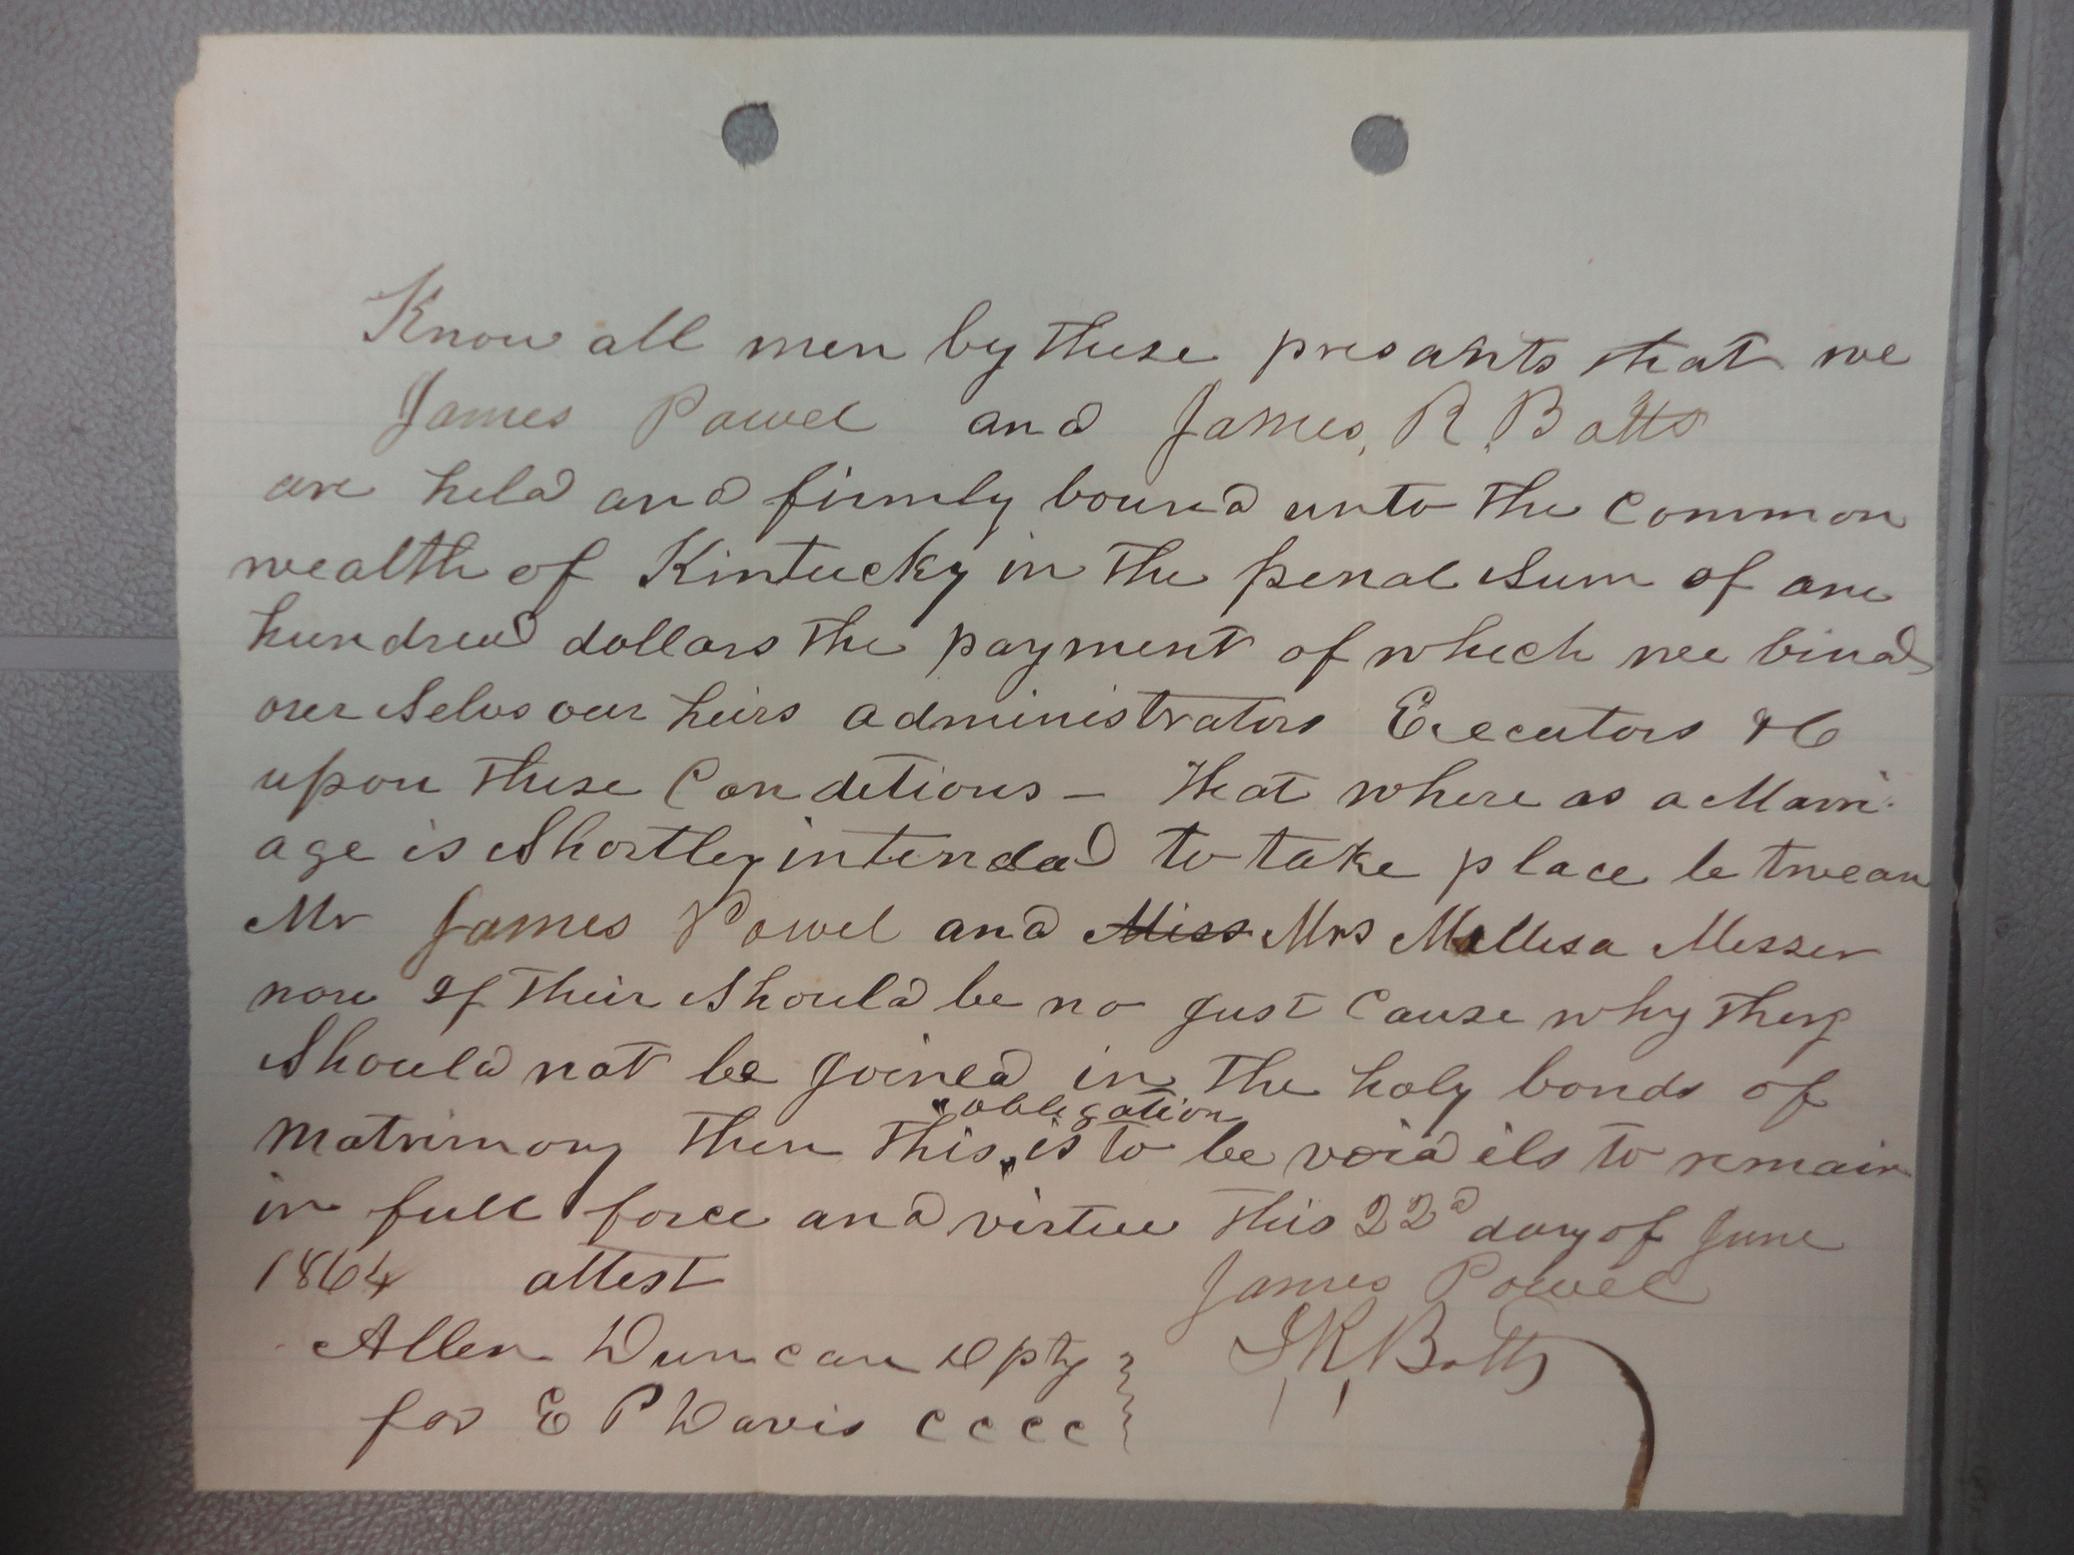 Know all men by these presants that we
James Powel and James, R, Botts
are held and firmly bound unto the Common
wealth of Kintucky in the penal sum of one
hundred dollars the payment of which we bind
our selvs our heirs administrators Executors &C
upon these Conditions - That where as a Marri
age is shortley intended to take place be twean
Mr James Powel and Miss Mrs Mellesa Messer
now If their should be no just Cause why they
should not be joined in the holy bonds of
obligation
Matrimony then this is to be void els to remain
in full force and virtue this 22d day of June
1864 attest James Powel
Allen Duncan Dpty J,R,Botts
for E P Davis C C C C